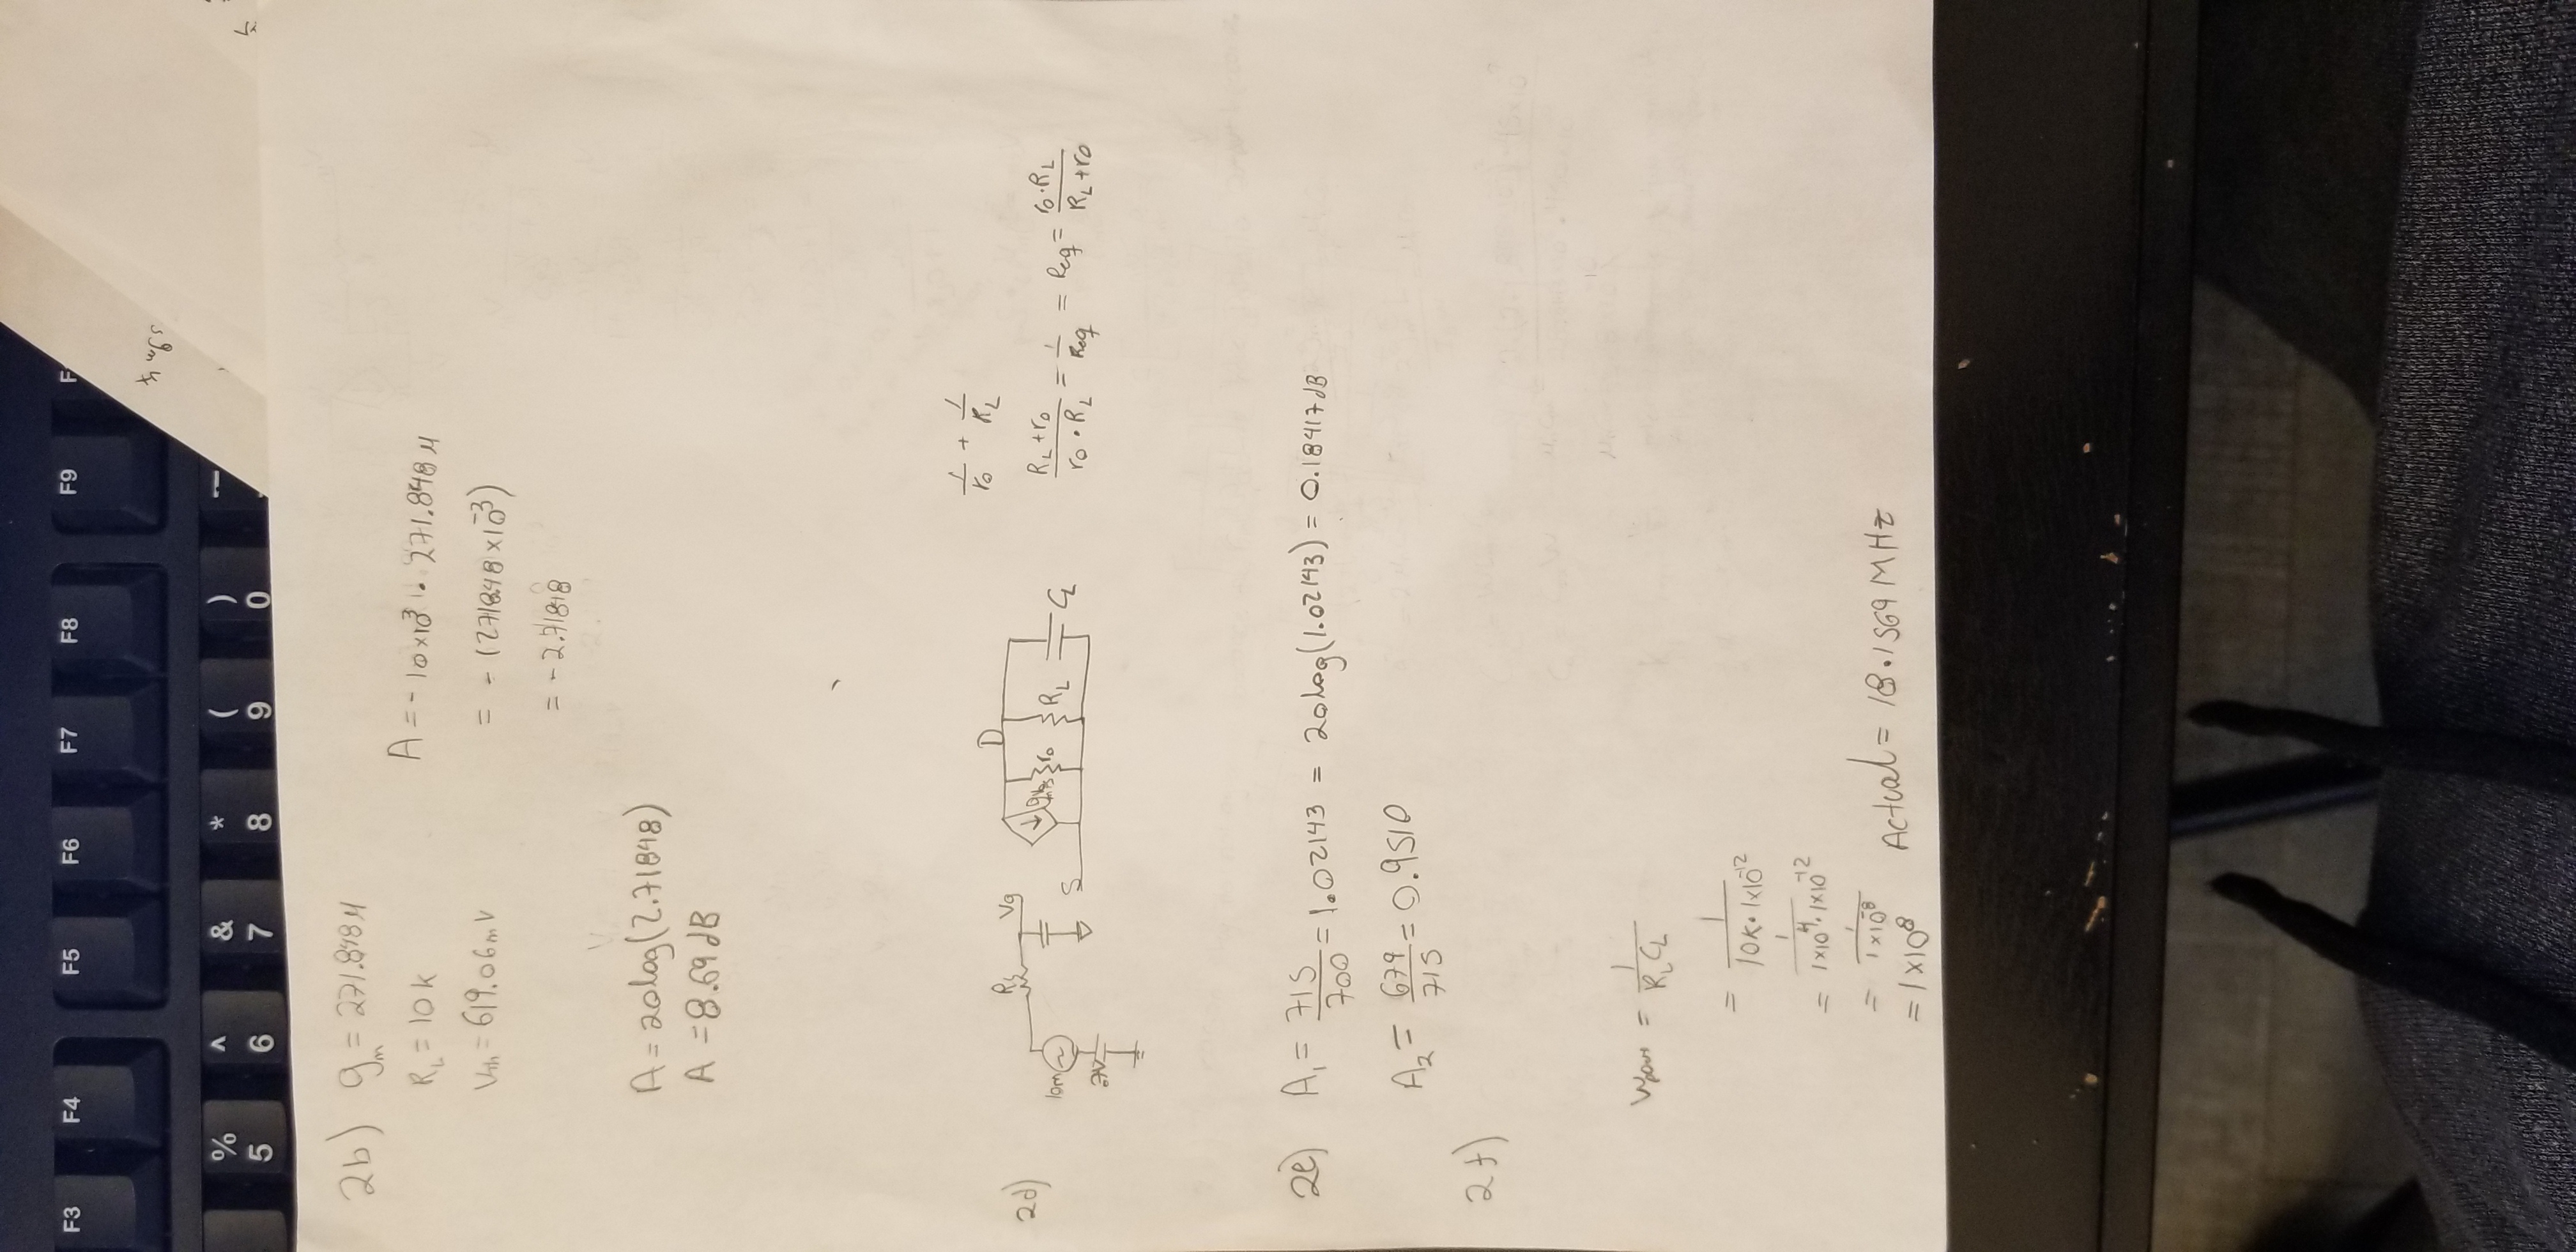 F3 F4 F5 F6 F7 F8 F9
% ^ & * ( )
5 6 7 8 9 0
2b) gm = 271.848 μ
RL = 10 k
Vth = 619.06 mV
A = - 10×10³ · 271.848 μ
= - (271848 ×10⁻³)
= - 2.71848
A = 20log(2.71848)
A = 8.69 dB
2d)
Rs Vg
10m
2V
S
D
ro RL CL
1/ro + 1/RL
(RL + ro)/(ro · RL) = 1/Req = Req = (ro · RL)/(RL + ro)
2e) A₁ = 715/700 = 1.02143 = 20log(1.02143) = 0.18417 dB
A₂ = 679/715 = 0.9510
2f)
= 1/(RL CL)
= 1/(10K · 1×10⁻¹²)
= 1/(1×10⁴ · 1×10⁻¹²)
= 1/(1×10⁻⁸)
= 1×10⁸
Actual = 18.1569 MHz